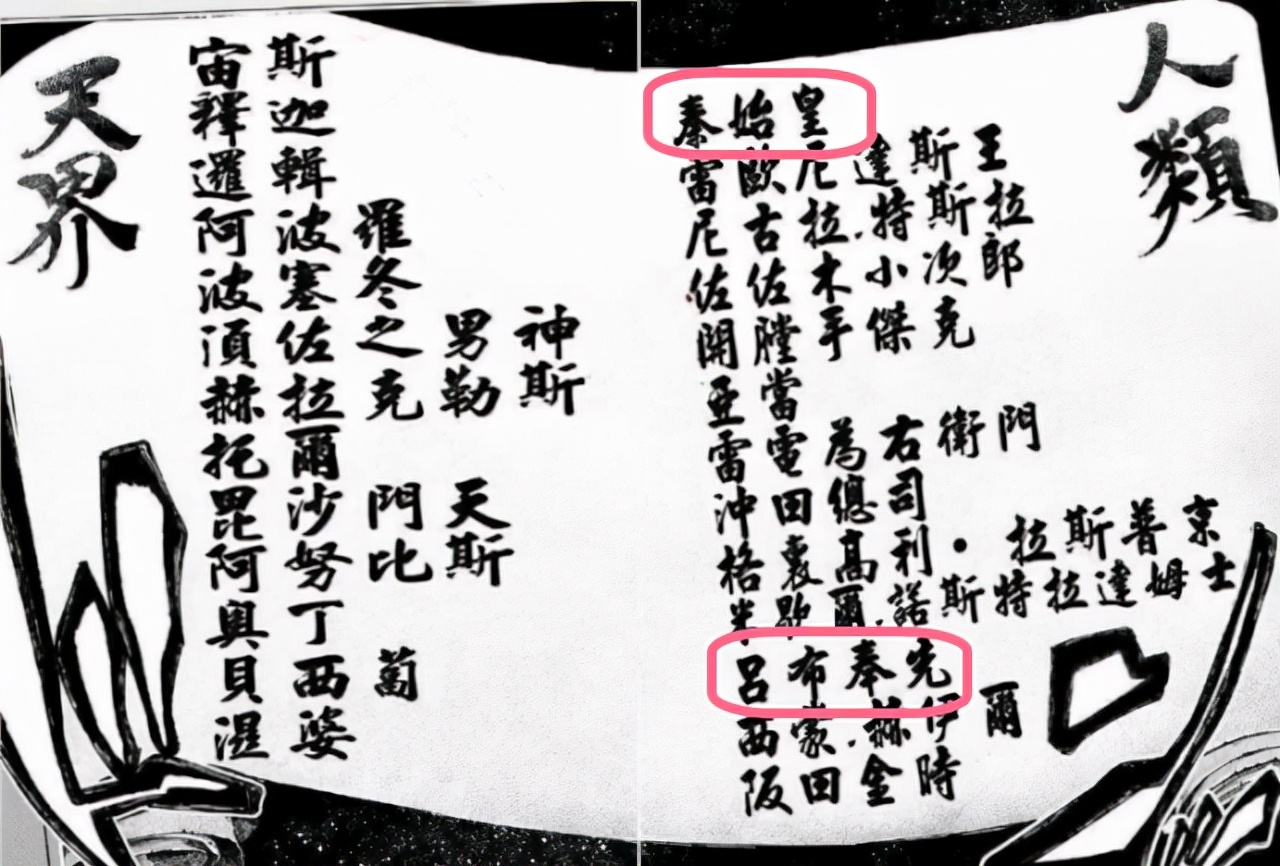 天界
宙斯
釋迦
邏輯
阿波羅
波塞冬
湏佐之男神
赫拉克勒斯
托爾
毘沙門天
阿努比斯
奧丁
貝西葡
湿婆
人類
秦始皇
雷歐尼達斯王
尼古拉.特斯拉
佐佐木小次郎
開膛手傑克
亞當
雷電為右衛門
沖田總司
格裏高利·拉斯普京
米歇爾.諾斯特拉達姆士
呂布奉先
西蒙.赫伊爾
阪田金時